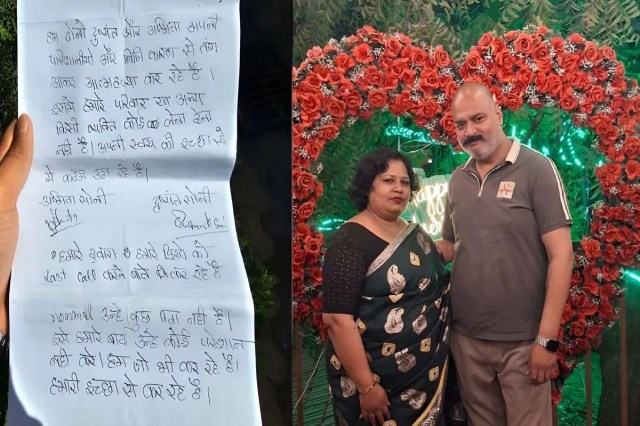 हम दोनों दुष्यंत और अमिता अपनी
परेशानीयो और निजि कारण से तंग
आकर आत्महत्या कर रहे है।
इसमे हमारे परिवार या अन्य
किसी व्यक्ति कोई लेना देना
नही है। अपनी स्वयं की इच्छा से
ये कदम उठा रहे है।
अमिता सोनी दुष्यंत सोनी
हमारे द्वारा हमारे प्रियो को
Last call करने वाले कर रहे है
normal उन्हे कुछ पता नही है।
इसे हमारे बाद उन्हे कोई परेशान
नही करे। हम जो भी कर रहे है।
हमारी इच्छा से कर रहे है।
Happy